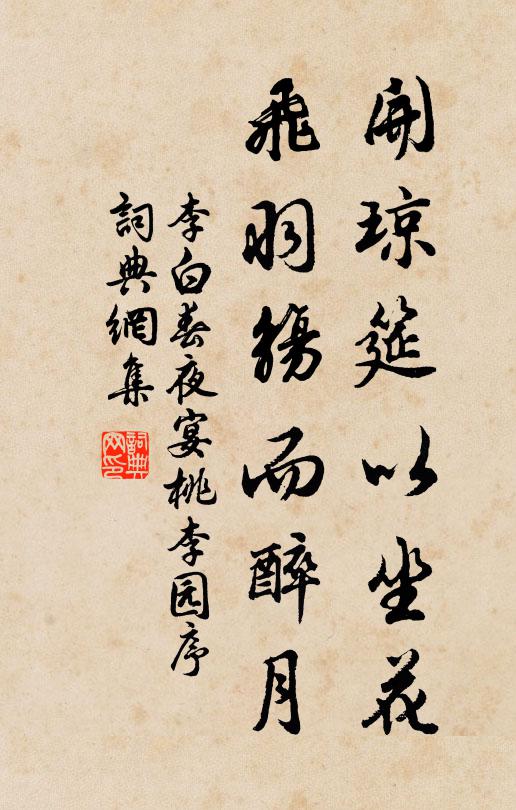 開瓊筵以坐花
飛羽觴而醉月
李白春夜宴桃李园序
詞典網集
詞典网印